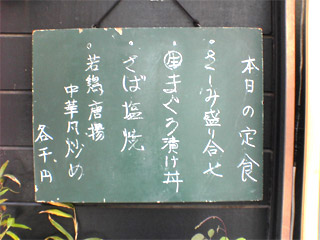 本日の定食
・さしみ盛り合せ
・㊤まぐろ漬け丼
・さば塩焼
・若鶏唐揚
中華風炒め
各千円